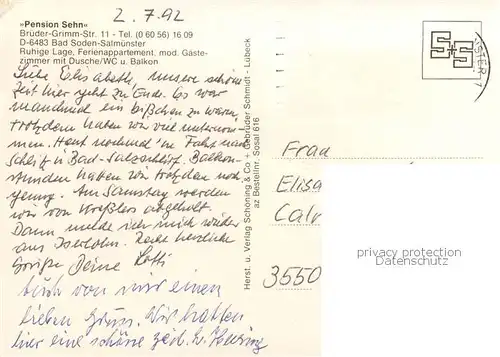 2.7.92
»Pension Sehn«
Brüder-Grimm-Str. 11 - Tel. (0 60 56) 16 09
D-6483 Bad Soden-Salmünster
Ruhige Lage, Ferienappartement, mod. Gäste-
zimmer mit Dusche/WC u. Balkon
Liebe Elisabeth, unsere schöne
Zeit hier geht zu Ende. Es war
manchmal ein bißchen zu warm,
trotzdem haben wir viel unternom-
men. Heut nochmal 'ne Fahrt nach
Schlitz u. Bad-Salzschlirf. Balkon-
stunden hatten wir trotzdem noch
genug. Am Samstag werden
wir von abgeholt.
Dann melde ich mich wieder
aus Iserlohn. Recht herzliche
Grüße Deine Lotti
Auch von mir einen
lieben Gruss. Wir hatten
hier eine schöne Zeit.
Herst. u. Verlag Schöning & Co + Gebrüder Schmidt - Lübeck
az Bestellnr. Sosal 616
Frau
Elisa
Calv
3550
privacy protection
Datenschutz